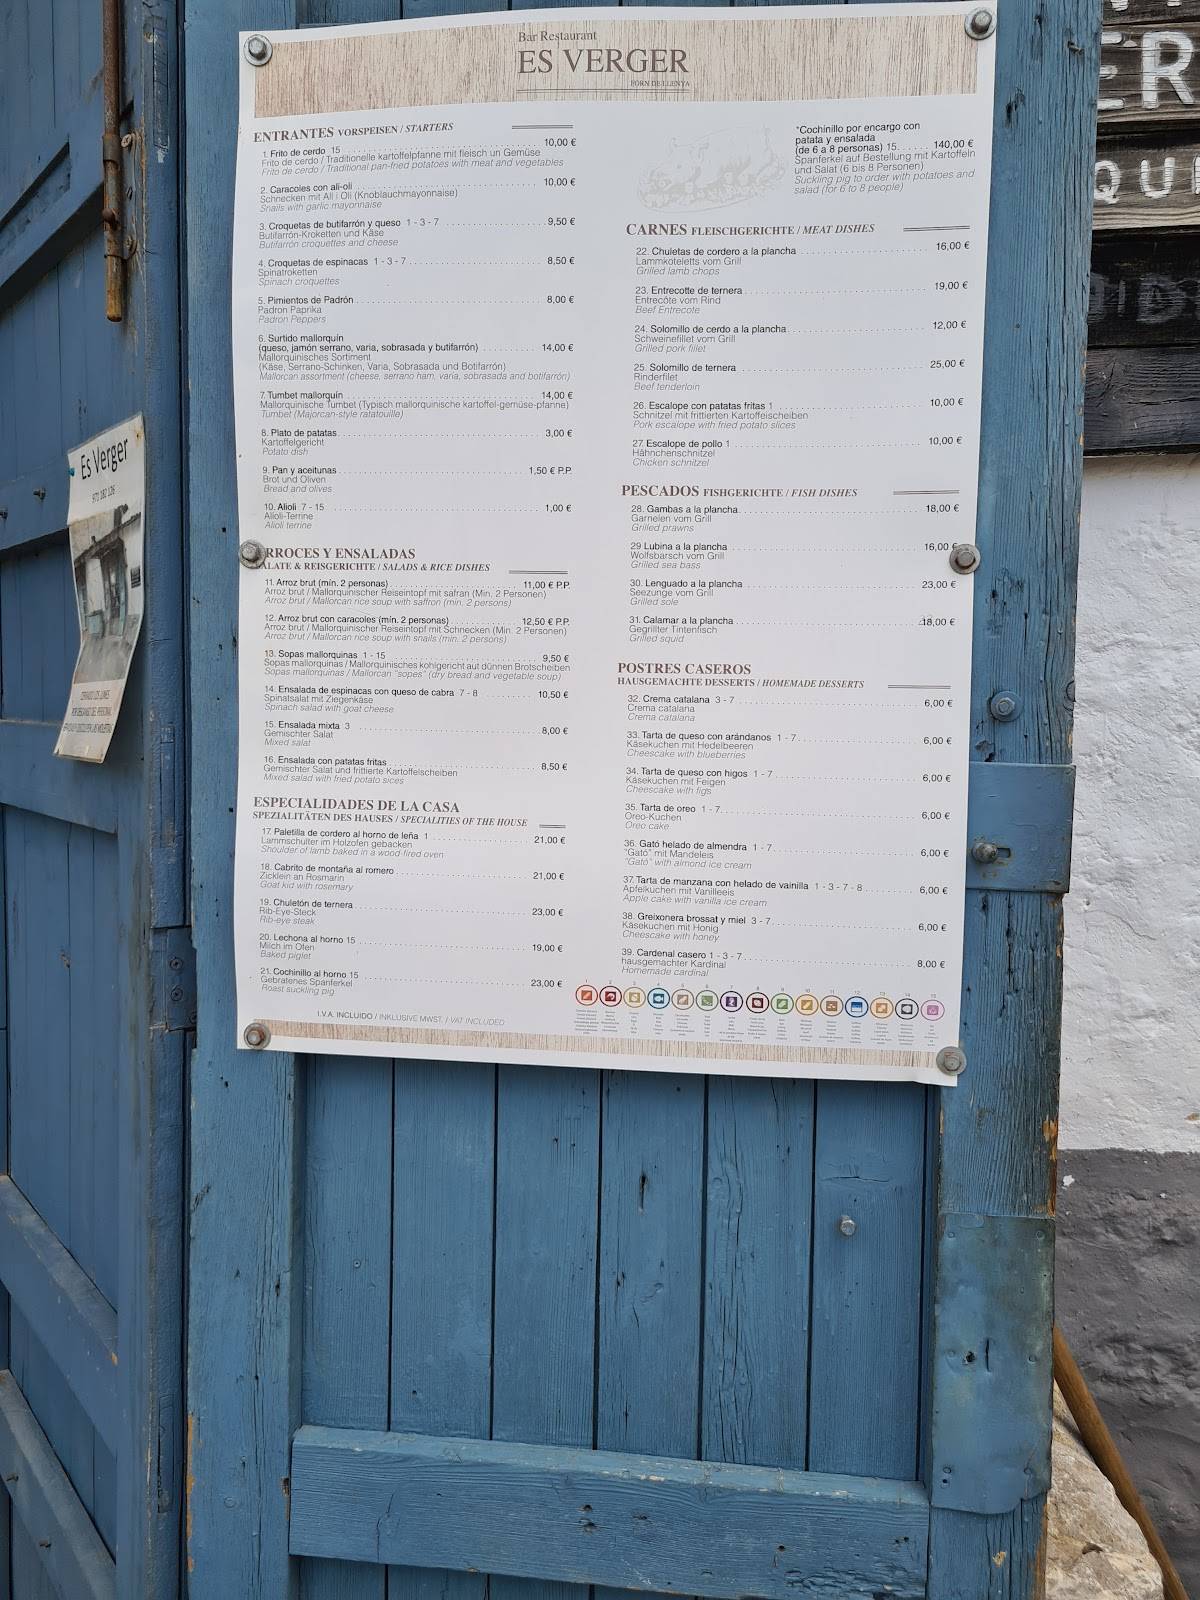 Bar Restaurant
ES VERGER
FORN DE LLENYA
ENTRANTES VORSPEISEN / STARTERS
1. Frito de cerdo 15 10,00 €
Frito de cerdo / Traditionelle kartoffelpfanne mit fleisch un Gemüse
Frito de cerdo / Traditional pan-fried potatoes with meat and vegetables
2. Caracoles con ali-oli 10,00 €
Schnecken mit All i Oli (Knoblauchmayonnaise)
Snails with garlic mayonnaise
3. Croquetas de butifarrón y queso 1 - 3 - 7 9,50 €
Butifarrón-Kroketten und Käse
Butifarrón croquettes and cheese
4. Croquetas de espinacas 1 - 3 - 7 8,50 €
Spinatroketten
Spinach croquettes
5. Pimientos de Padrón 8,00 €
Padron Paprika
Padron Peppers
6. Surtido mallorquín
(queso, jamón serrano, varia, sobrasada y butifarrón) 14,00 €
Mallorquinisches Sortiment
(Käse, Serrano-Schinken, Varia, Sobrasada und Botifarrón)
Mallorcan assortment (cheese, serrano ham, varia, sobrasada and botifarrón)
7. Tumbet mallorquín 14,00 €
Mallorquinische Tumbet (Typisch mallorquinische kartoffel-gemüse-pfanne)
Tumbet (Majorcan-style ratatouille)
8. Plato de patatas 3,00 €
Kartoffelgericht
Potato dish
9. Pan y aceitunas 1,50 € P.P.
Brot und Oliven
Bread and olives
10. Alioli 7 - 15 1,00 €
Alioli-Terrine
Alioli terrine
RROCES Y ENSALADAS
ALATE & REISGERICHTE / SALADS & RICE DISHES
11. Arroz brut (mín. 2 personas) 11,00 € P.P.
Arroz brut / Mallorquinischer Reiseintopf mit safran (Min. 2 Personen)
Arroz brut / Mallorcan rice soup with saffron (min. 2 persons)
12. Arroz brut con caracoles (mín. 2 personas) 12,50 € P.P.
Arroz brut / Mallorquinischer Reiseintopf mit Schnecken (Min. 2 Personen)
Arroz brut / Mallorcan rice soup with snails (min. 2 persons)
13. Sopas mallorquinas 1 - 15 9,50 €
Sopas mallorquinas / Mallorquinisches kohlgericht aut dünnen Brotscheiben
Sopas mallorquinas / Mallorcan "sopes" (dry bread and vegetable soup)
14. Ensalada de espinacas con queso de cabra 7 - 8 10,50 €
Spinatsalat mit Ziegenkäse
Spinach salad with goat cheese
15. Ensalada mixta 3 8,00 €
Gemischter Salat
Mixed salat
16. Ensalada con patatas fritas 8,50 €
Gemischter Salat und frittierte Kartoffelscheiben
Mixed salad with fried potato sices
ESPECIALIDADES DE LA CASA
SPEZIALITÄTEN DES HAUSES / SPECIALITIES OF THE HOUSE
17. Paletilla de cordero al horno de leña 1 21,00 €
Lammschulter im Holzofen gebacken
Shoulder of lamb baked in a wood-fired oven
18. Cabrito de montaña al romero 21,00 €
Zicklein an Rosmarin
Goat kid with rosemary
19. Chuletón de ternera 23,00 €
Rib-Eye-Steck
Rib-eye steak
20. Lechona al horno 15 19,00 €
Milch im Ofen
Baked piglet
21. Cochinillo al horno 15 23,00 €
Gebratenes Spanferkel
Roast suckling pig
I.V.A. INCLUIDO / INKLUSIVE MWST. / VAT INCLUDED
*Cochinillo por encargo con
patata y ensalada
(de 6 a 8 personas) 15 140,00 €
Spanferkel auf Bestellung mit Kartoffeln
und Salat (6 bis 8 Personen)
Suckling pig to order with potatoes and
salad (for 6 to 8 people)
CARNES FLEISCHGERICHTE / MEAT DISHES
22. Chuletas de cordero a la plancha 16,00 €
Lammkoteletts vom Grill
Grilled lamb chops
23. Entrecotte de ternera 19,00 €
Entrecôte vom Rind
Beef Entrecote
24. Solomillo de cerdo a la plancha 12,00 €
Schweinefillet vom Grill
Grilled pork fillet
25. Solomillo de ternera 25,00 €
Rinderfilet
Beef tenderloin
26. Escalope con patatas fritas 1 10,00 €
Schnitzel mit frittierten Kartoffeischeiben
Pork escalope with fried potato slices
27. Escalope de pollo 1 10,00 €
Hähnchenschnitzel
Chicken schnitzel
PESCADOS FISHGERICHTE / FISH DISHES
28. Gambas a la plancha 18,00 €
Garnelen vom Grill
Grilled prawns
29 Lubina a la plancha 16,00 €
Wolfsbarsch vom Grill
Grilled sea bass
30. Lenguado a la plancha 23,00 €
Seezunge vom Grill
Grilled sole
31. Calamar a la plancha 18,00 €
Gegrillter Tintenfisch
Grilled squid
POSTRES CASEROS
HAUSGEMACHTE DESSERTS / HOMEMADE DESSERTS
32. Crema catalana 3 - 7 6,00 €
Crema catalana
Crema catalana
33. Tarta de queso con arándanos 1 - 7 6,00 €
Käsekuchen mit Hedelbeeren
Cheescake with blueberries
34. Tarta de queso con higos 1 - 7 6,00 €
Käsekuchen mit Feigen
Cheescake with figs
35. Tarta de oreo 1 - 7 6,00 €
Oreo-Kuchen
Oreo cake
36. Gató helado de almendra 1 - 7 6,00 €
"Gató" mit Mandeleis
"Gató" with almond ice cream
37. Tarta de manzana con helado de vainilla 1 - 3 - 7 - 8 6,00 €
Apfelkuchen mit Vanilleeis
Apple cake with vanilla ice cream
38. Greixonera brossat y miel 3 - 7 6,00 €
Käsekuchen mit Honig
Cheescake with honey
39. Cardenal casero 1 - 3 - 7 8,00 €
hausgemachter Kardinal
Homemade cardinal
Es Verger
971 182 126
CERRADO LOS LUNES
POR DESCANSO DEL PERSONAL
ER
QU